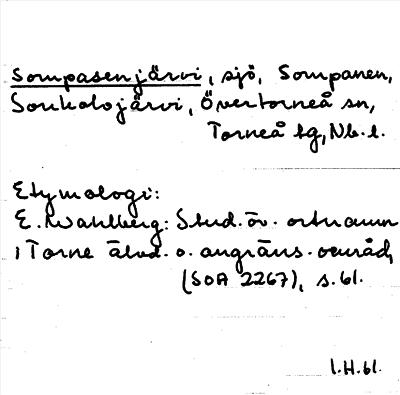 Sompasenjärvi, sjö, Sompanen,
Soukolojärvi, Övertorneå sn,
Torneå tg, Nb. l.
Etymologi:
E. Wahlberg: Stud. öv. ortnamn
i Torne älvd. o. angräns. områd,
(SOA 2267), s. 61.
1.H.61.